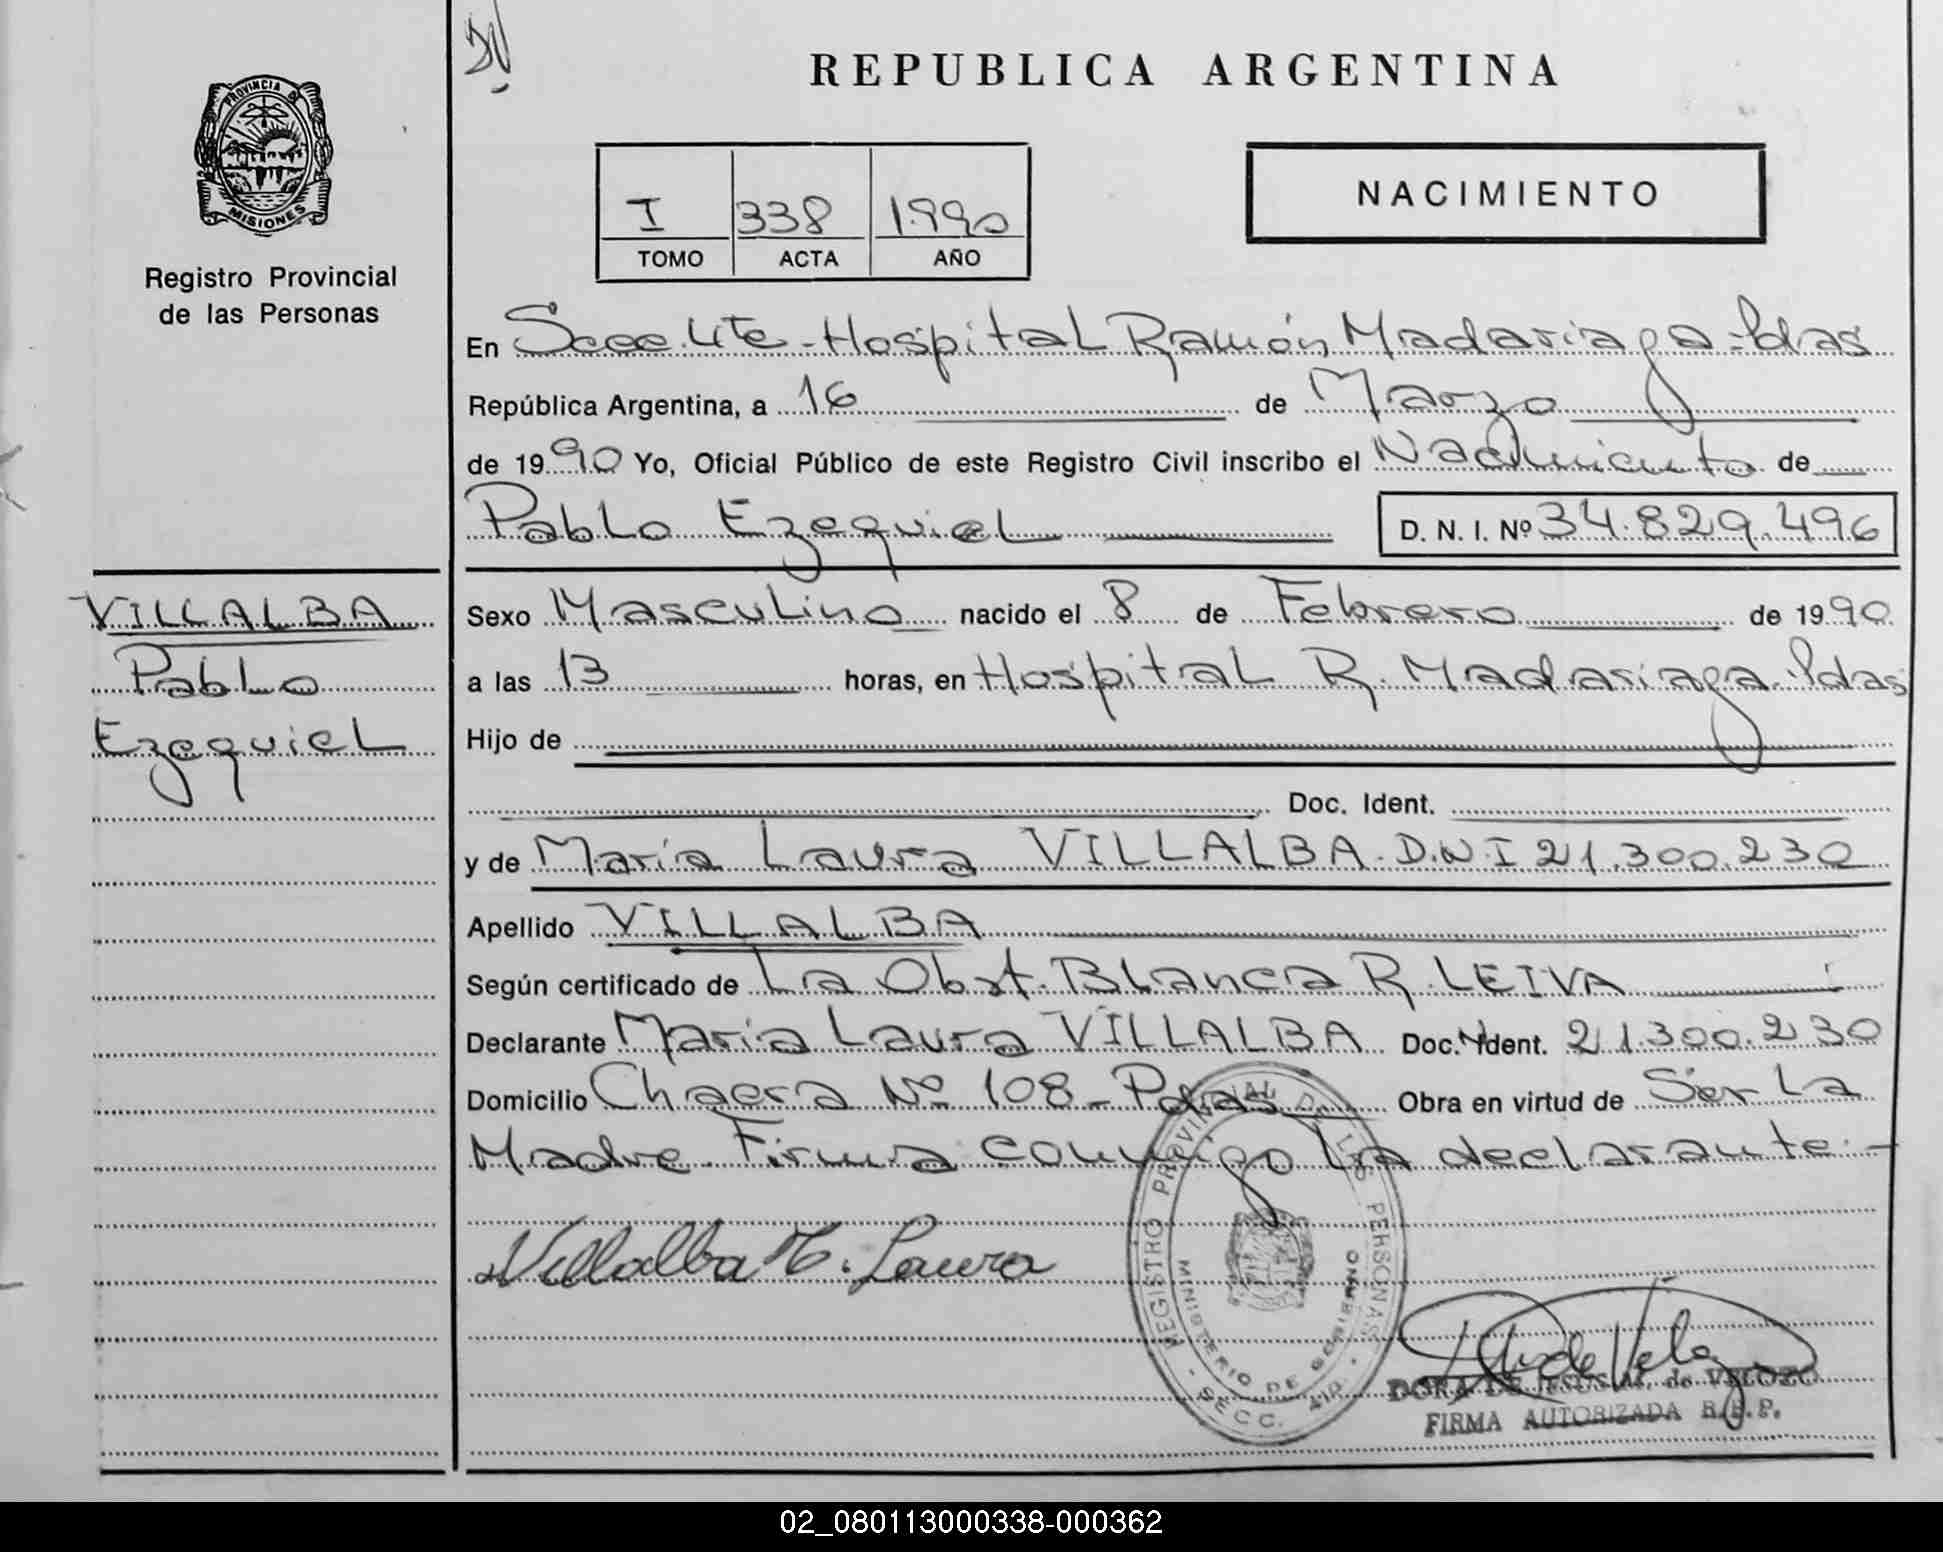 REPUBLICA ARGENTINA
PROVINCIA DE
MISIONES
Registro Provincial
de las Personas
I 338 1990
TOMO ACTA AÑO
NACIMIENTO
En Secc 4ta - Hospital Ramón Madariaga - Pdas
República Argentina, a 16 de Marzo
de 1990 Yo, Oficial Público de este Registro Civil inscribo el Nacimiento de
Pablo Ezequiel D. N. I. Nº 34.829.496
VILLALBA
Pablo
Ezequiel
Sexo Masculino nacido el 8 de Febrero de 1990
a las 13 horas, en Hospital R. Madariaga. Pdas
Hijo de
Doc. Ident.
y de María Laura VILLALBA. D.N.I 21.300.230
Apellido VILLALBA
Según certificado de La Obst. Blanca R. LEIVA
Declarante María Laura VILLALBA Doc. Ident. 21.300.230
Domicilio Chacra Nº 108 - Pdas Obra en virtud de Ser La
Madre. Firma conmigo La declarante.-
Villalba M. Laura
REGISTRO PROVINCIAL DE LAS PERSONAS
MINISTERIO DE GOBIERNO
SECC. 4ta.
DORA DE JESUS M. de VELOZO
FIRMA AUTORIZADA R.P.P.
02_080113000338-000362